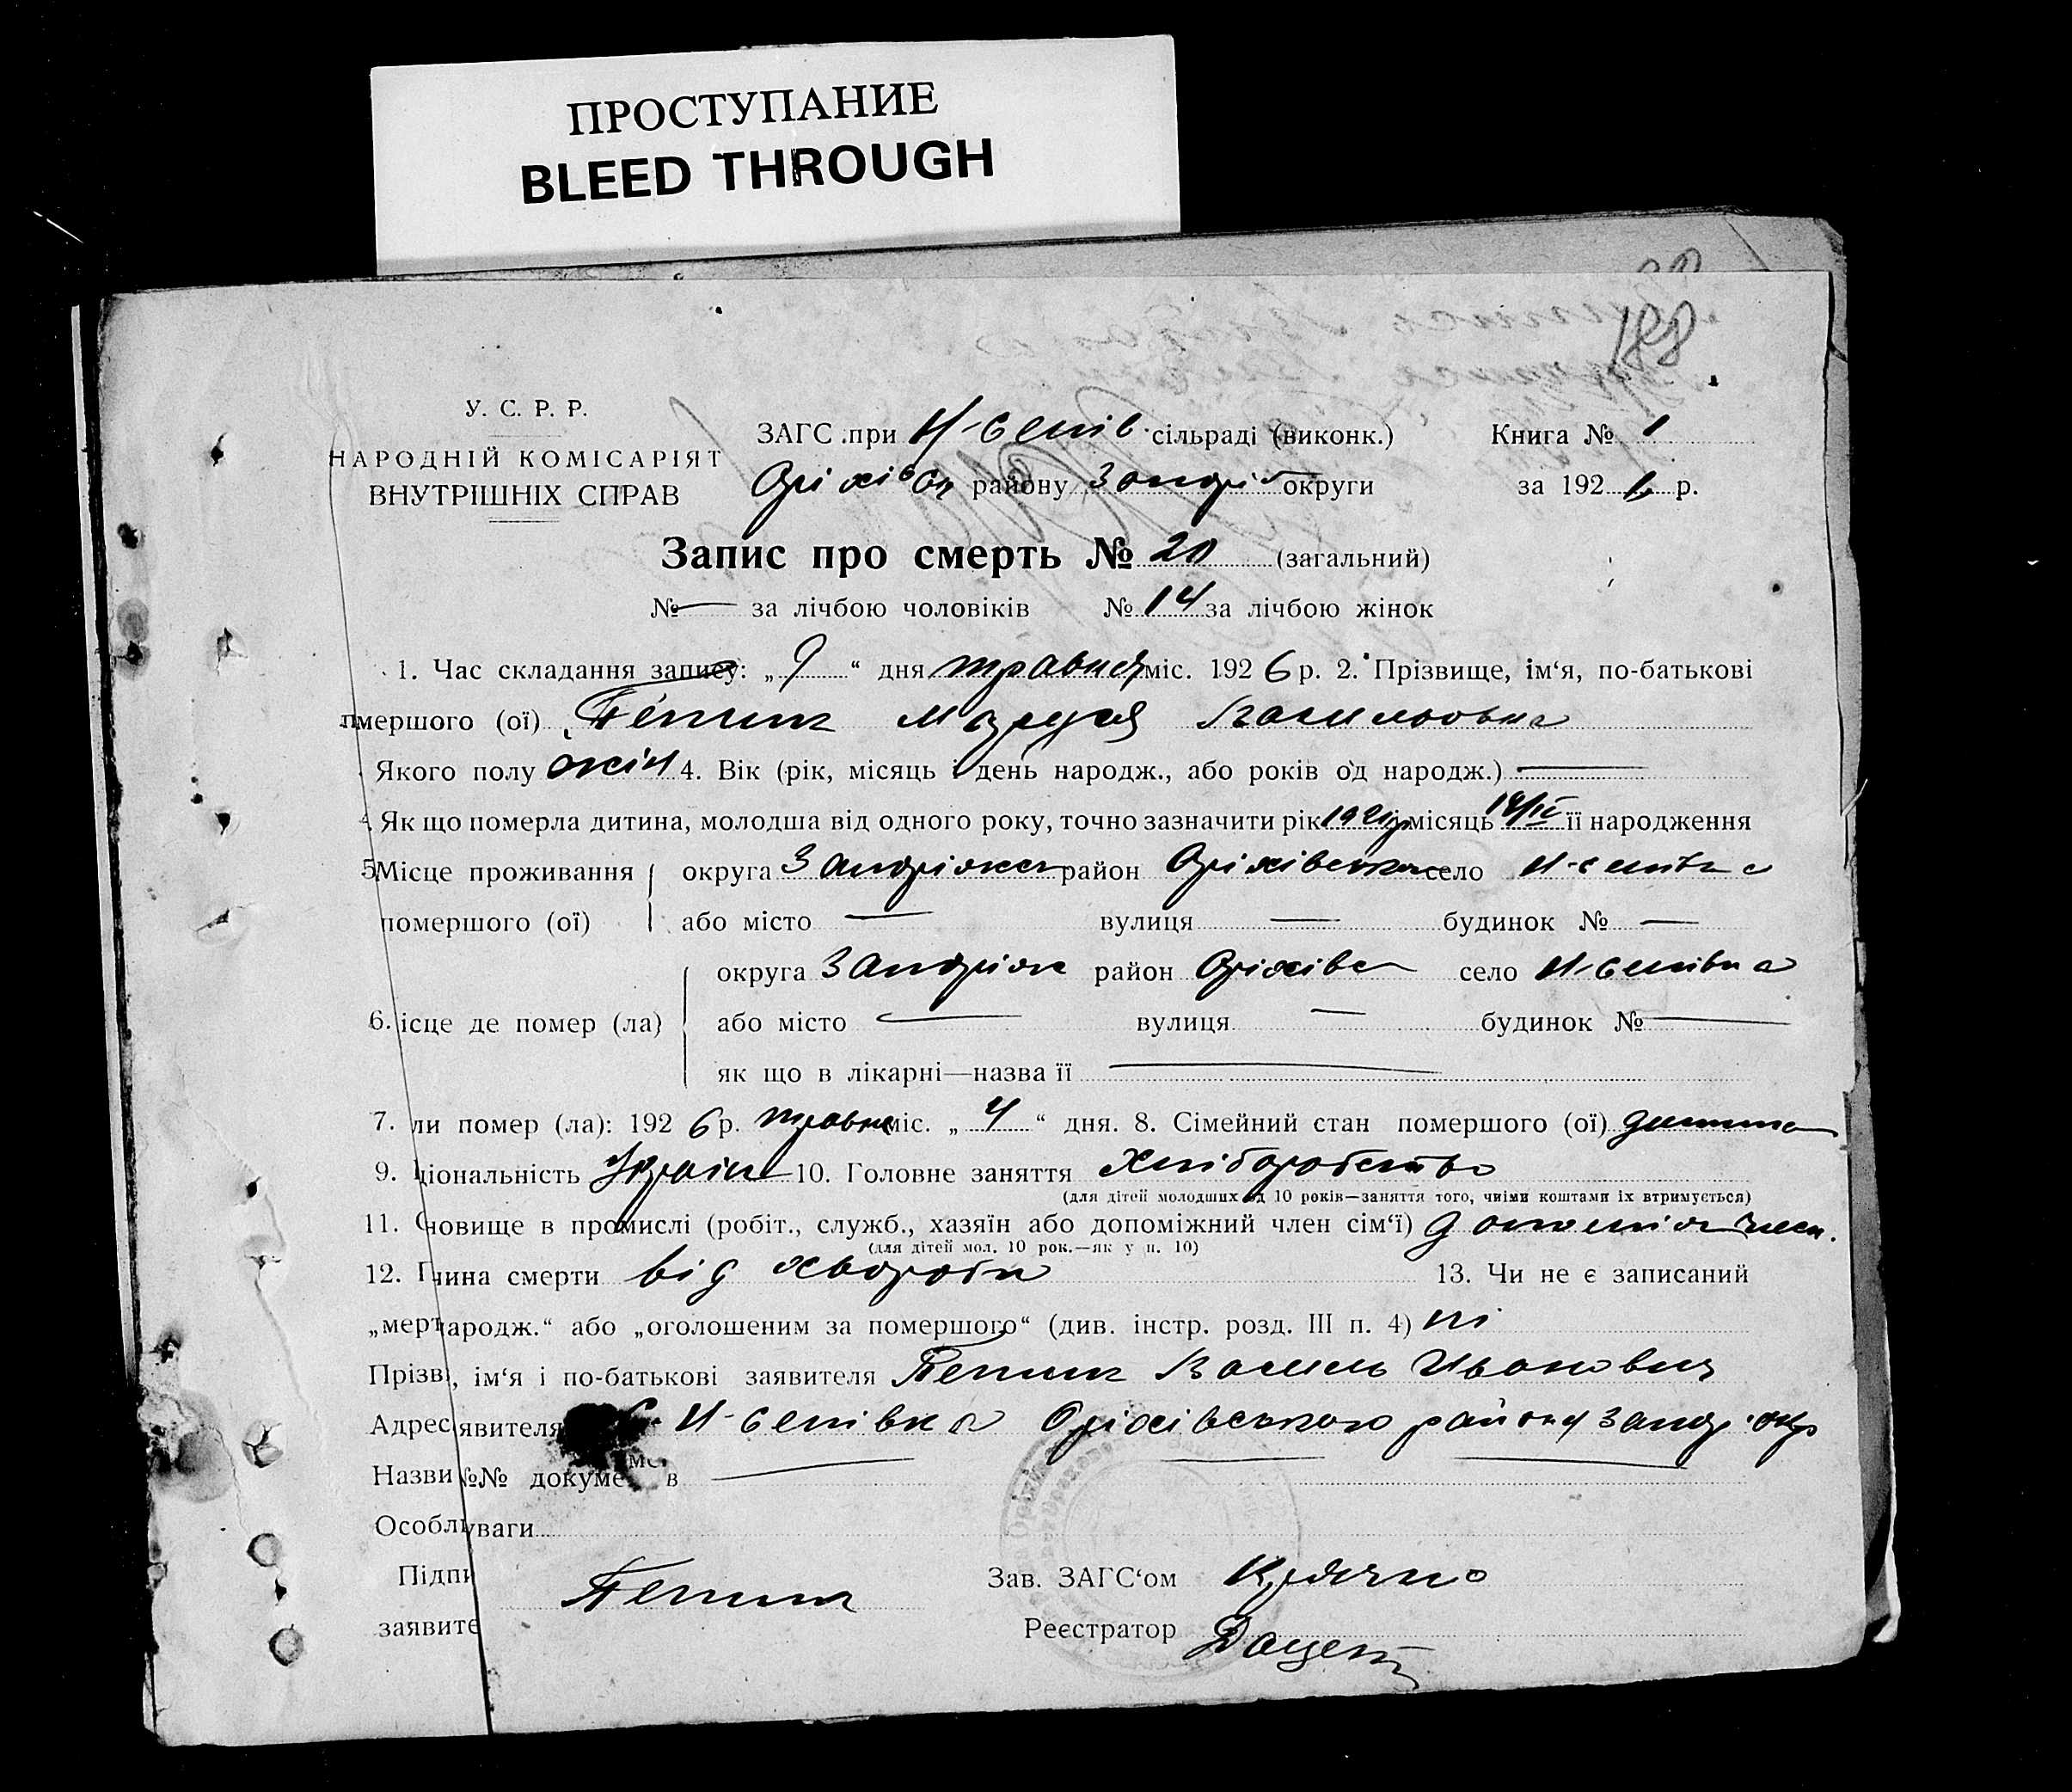 ПРОСТУПАНИЕ
BLEED THROUGH
188
У. С. Р. Р.
НАРОДНІЙ КОМІСАРІЯТ
ВНУТРІШНІХ СПРАВ
ЗАГС при сільраді (виконк.) Книга № 1
Оріхівськ району Запоріз округи за 1926 р.
Запис про смерть № 20 (загальний)
№ — за лічбою чоловіків № 14 за лічбою жінок
1. Час складання запису: „9“ дня травня міс. 1926 р. 2. Прізвище, ім‘я, по-батькові
пмершого (ої) Маруся Васильовна
Якого полу жін 4. Вік (рік, місяць і день народж., або років од народж.) —
Як що померла дитина, молодша від одного року, точно зазначити рік місяць її народження
5 Місце проживання округа Запоріжск район Оріхівський село
помершого (ої) або місто — вулиця — будинок № —
округа Запоріж район Оріхівс село
6. ісце де помер (ла) або місто — вулиця — будинок № —
як що в лікарні—назва її —
7. ли помер (ла): 1926 р. травня міс. „4“ дня. 8. Сімейний стан помершого (ої) дитина
9. ціональність Україн 10. Головне заняття Хліборобство
(для дітей молодших од 10 років—заняття того, чиїми коштами їх втримується)
11. новище в промислі (робіт., служб., хазяїн або допоміжний член сім‘ї) допоміж член.
(для дітей мол. 10 рок.—як у п. 10)
12. чина смерти від хвороби 13. Чи не є записаний
„мерт ародж.“ або „оголошеним за помершого“ (див. інстр. розд. III п. 4) ні
Прізв , ім‘я і по-батькові заявителя Василь Иванович
Адрес явителя Оріхівського району Запор. окр
Назви №№ докуме в —
Особл уваги
Підпи Зав. ЗАГС‘ом
заявите Реєстратор